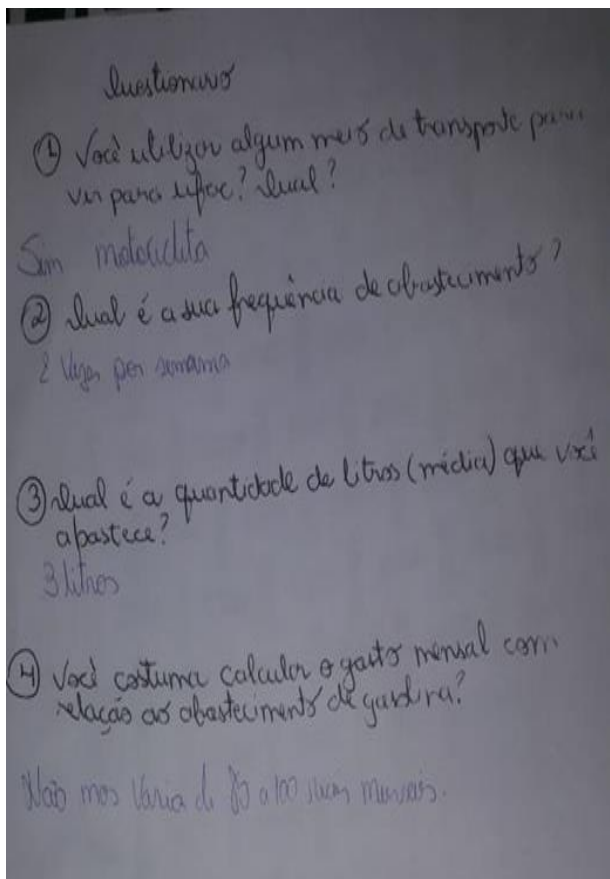 Questionario
① Você utilizar algum meio de transporte para
vir para ufac? Qual?
Sim motocicleta
② Qual é a sua frequência de abastecimento?
2 vezes por semana
③ Qual é a quantidade de litros (média) que você
abastece?
3 litros
④ Você costuma calcular o gasto mensal com
relação ao abastecimento de gasolina?
Não mas varia de a 100 reais mensais.